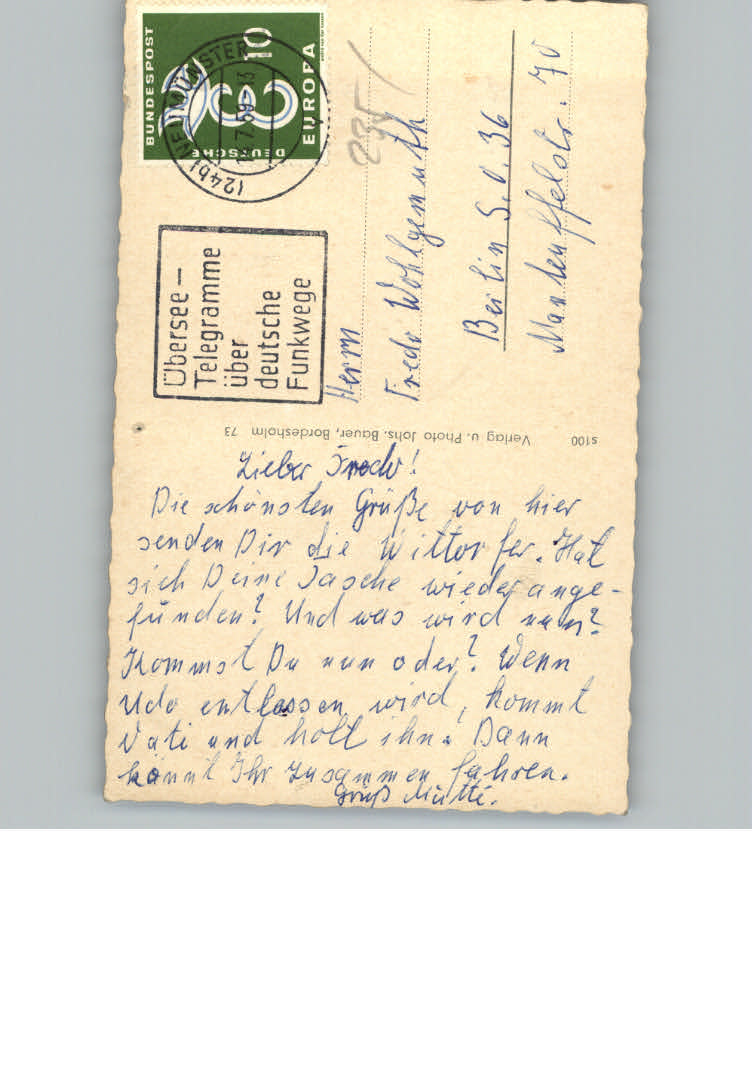 DEUTSCHE
BUNDESPOST
10
EUROPA
(24b) NEUMÜNSTER
Übersee—
Telegramme
über
deutsche
Funkwege
235/
Herrn
Fredo Wohlgemuth
Berlin S.O. 36
Manteuffelstr. 70
s100 Verlag u. Photo Johs. Bauer, Bordesholm 73
Lieber Fredo!
Die schönsten Grüße von hier
senden Dir die Wittorfer. Hat
sich Deine Tasche wieder ange-
funden? Und was wird nun?
Kommst Du nun oder? Wenn
Udo entlassen wird, kommt
Vati und holt ihn. Dann
könnt Ihr zusammen fahren.
Gruß Mutti.